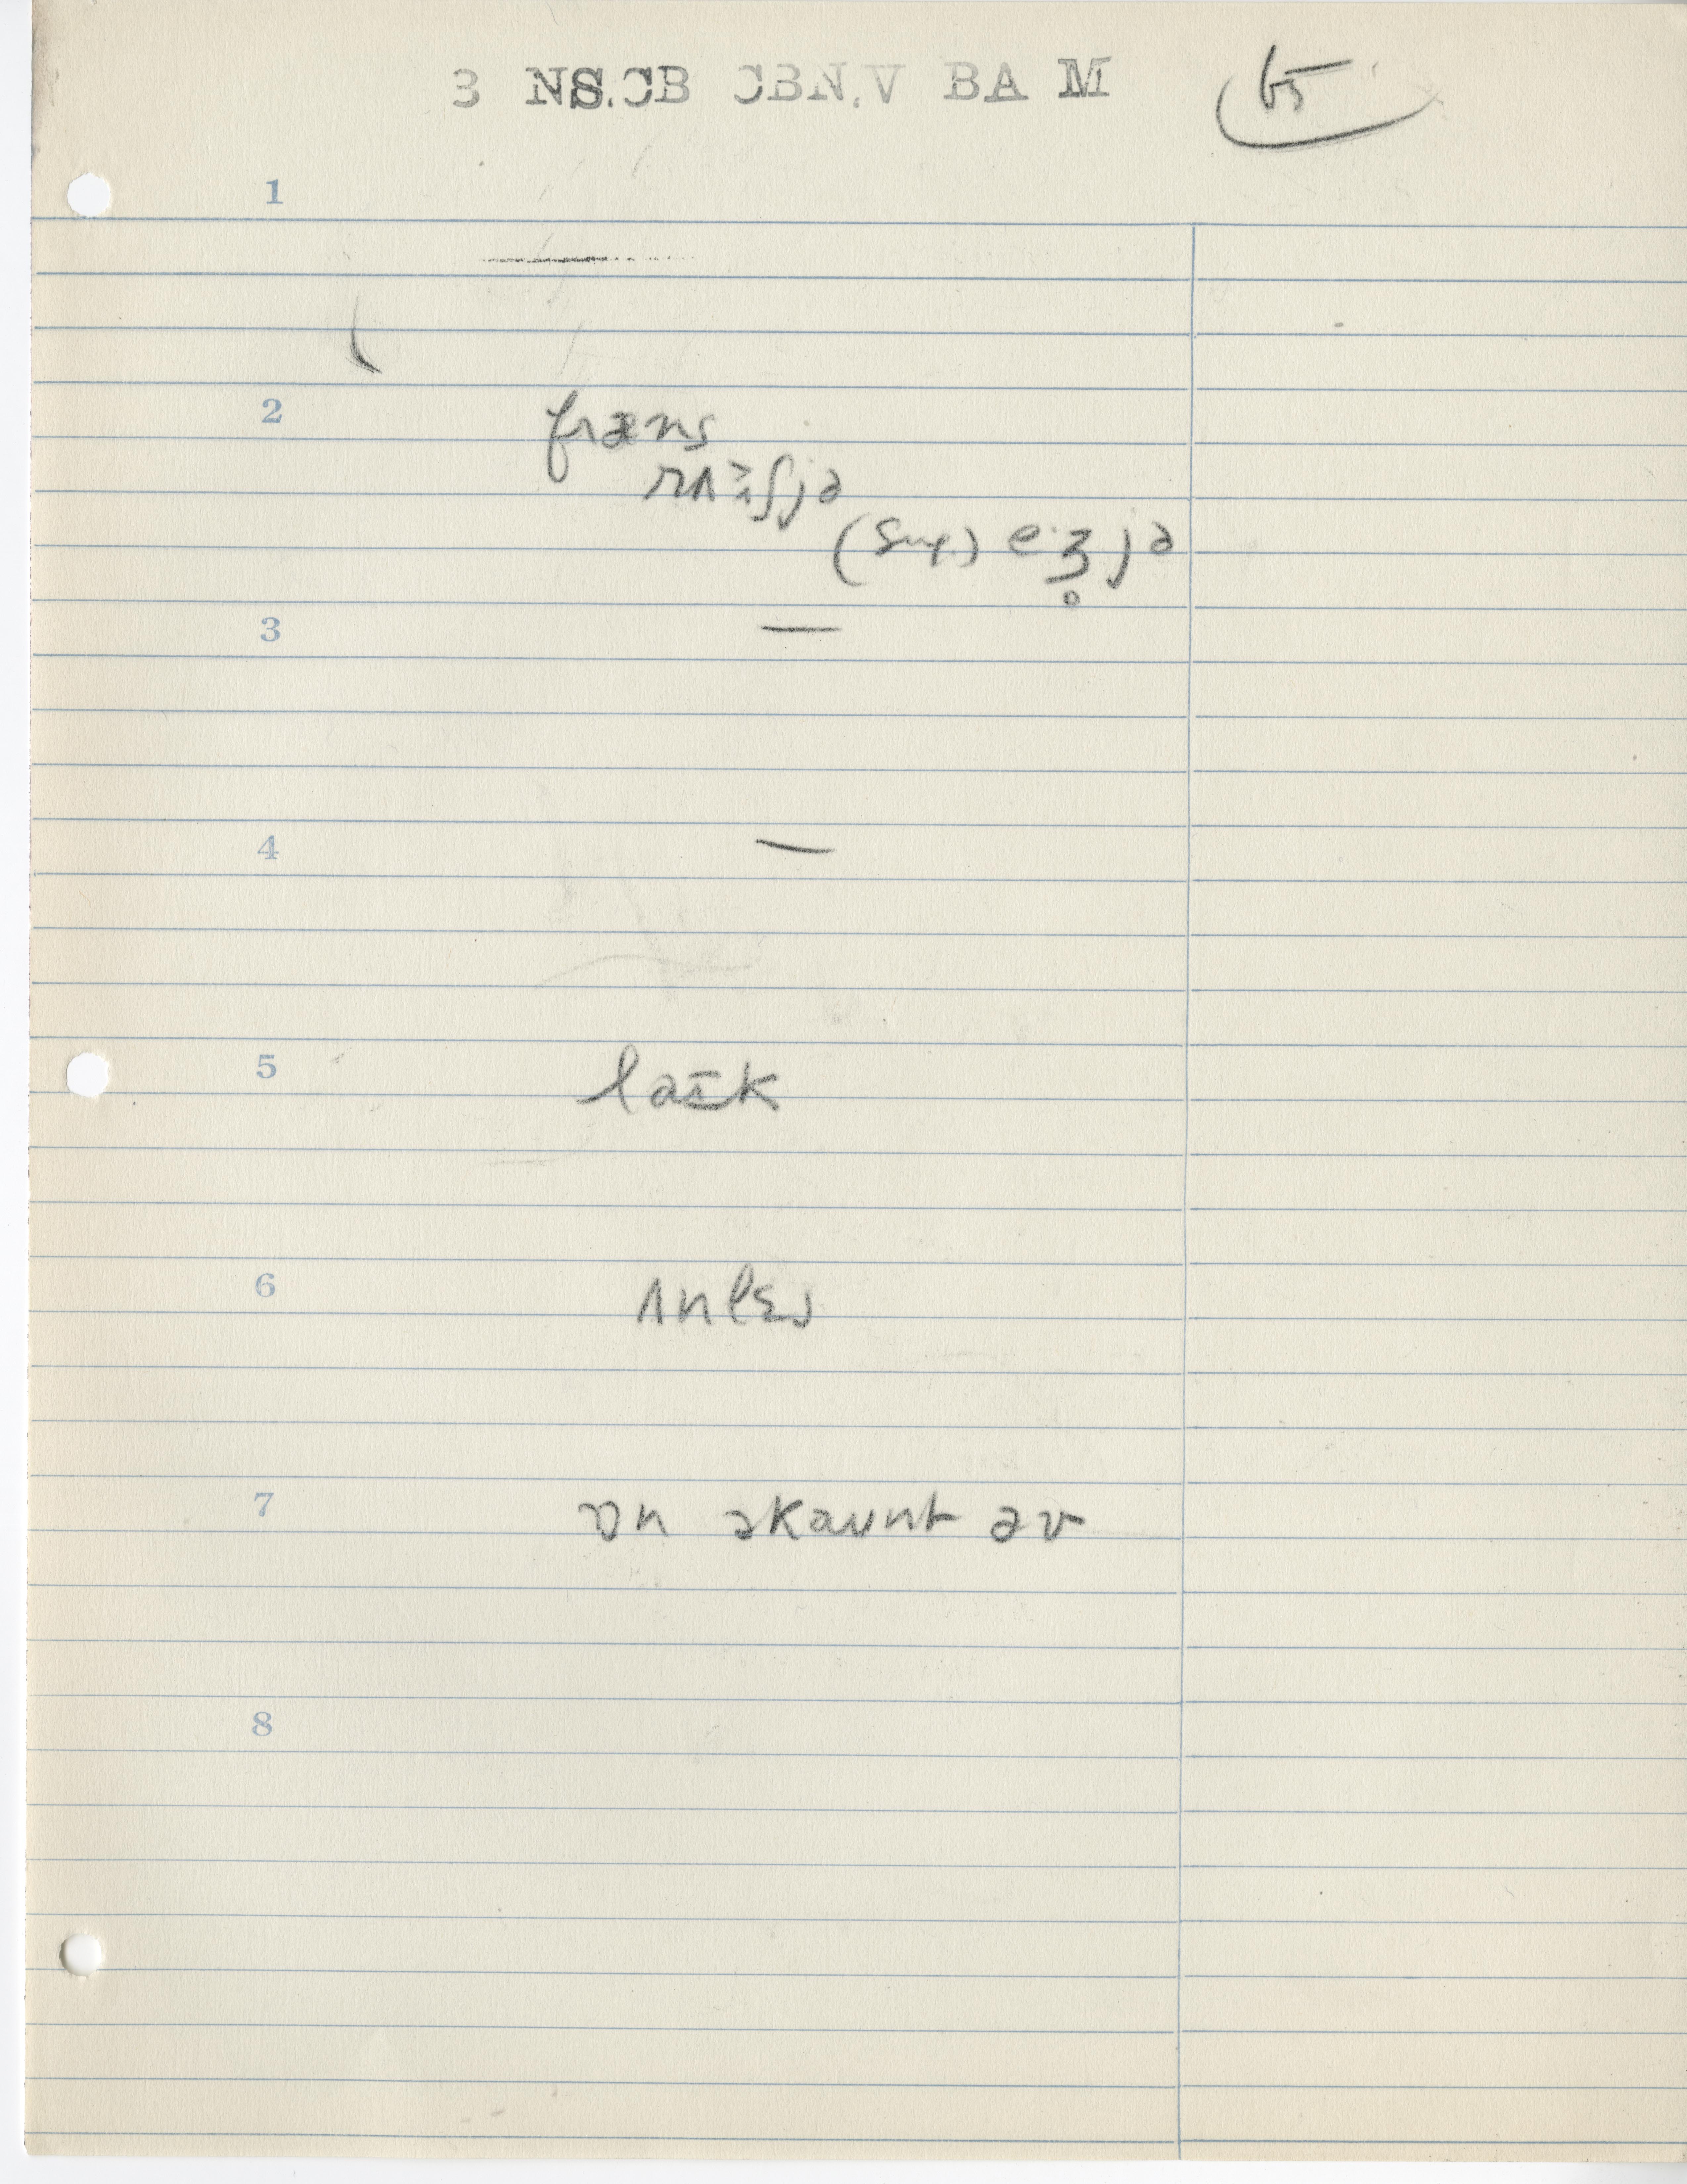 3 NS.CB CBN.V BA M 65
1
2 fræns
rʌ⪖ʃjə
(sup.) eˑʒ̥jə
3 —
4 —
5 laɪ̆k
6 ʌnlɛs
7 ɒn əkaunt əv
8